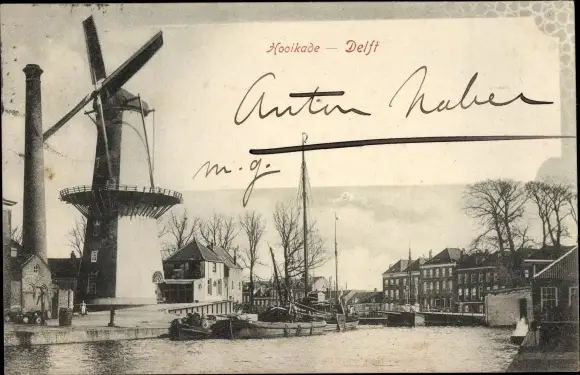 Hooikade — Delft
Anton Naber
m.g.